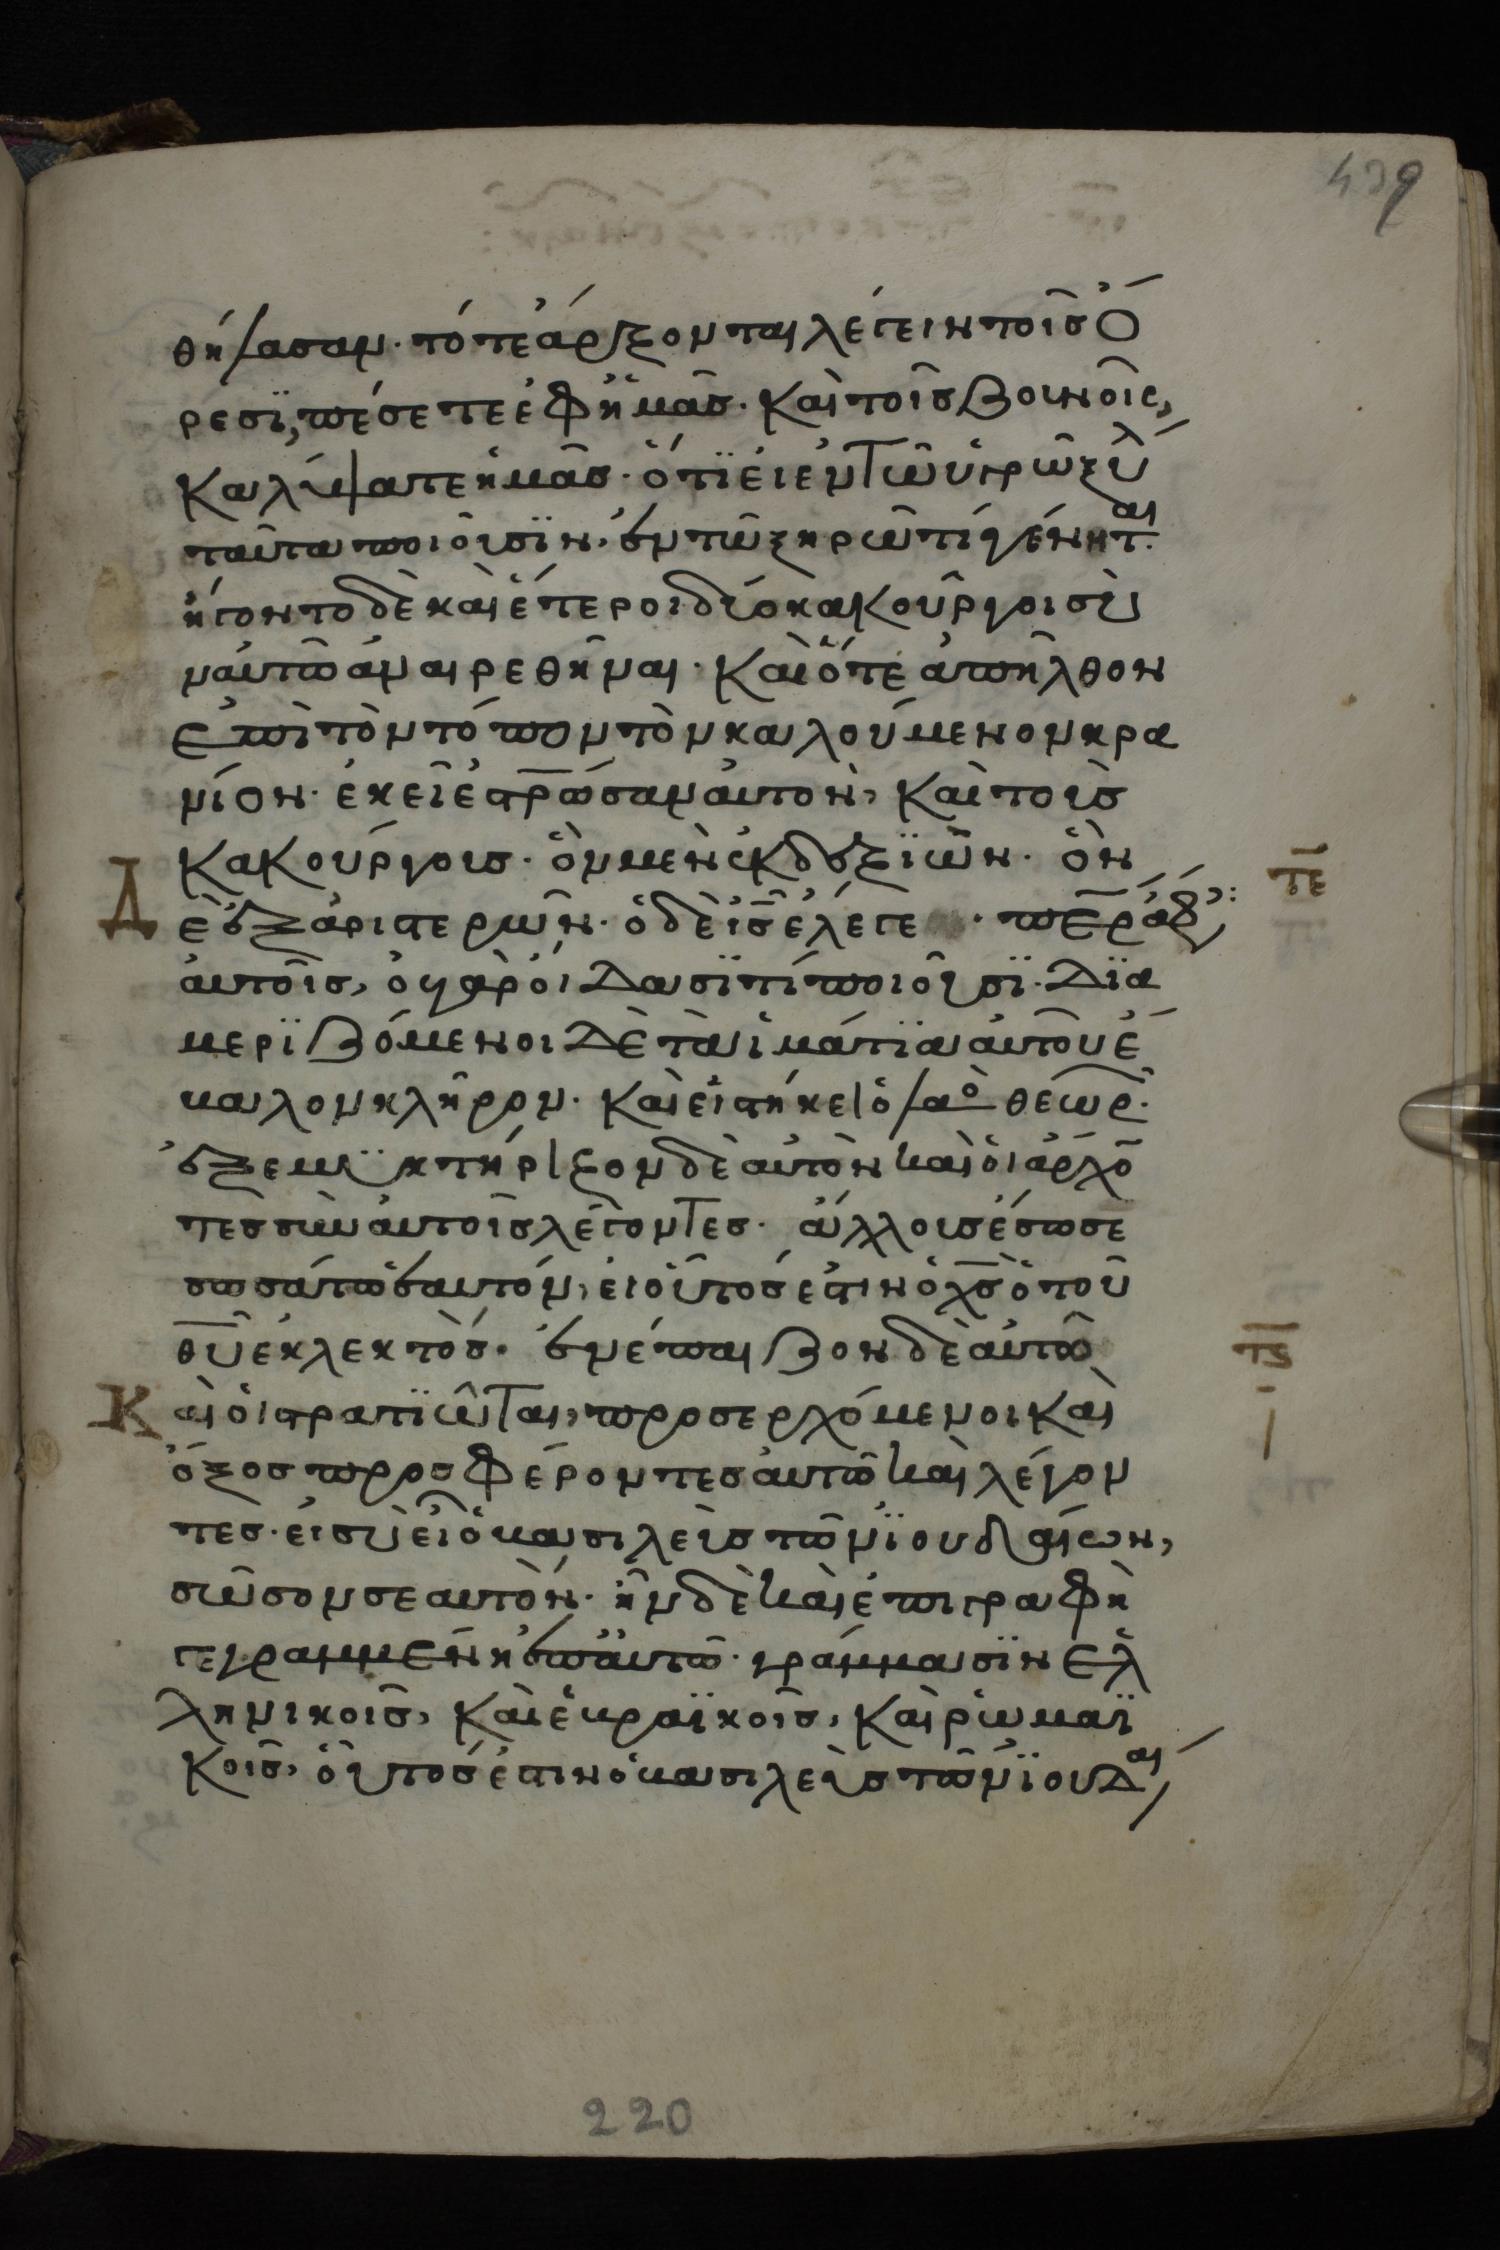 439
θήλασαν· τότε ἄρξονται λέγειν τοῖς ὄ
ρεσϊ, πέσετε ἐφ ἡμᾶς. καὶ τοῖς βουνοῖς,
καλύψατε ἡμᾶς· ὅτϊ εἰ ἐν τῶ ὑγρῶ ξύλ
ταῦτα ποιοῦσϊν, ἐν τῶ ξηρῶ τί γένηται·
ἤγοντο δὲ καὶ ἕτεροι δύο κακοῦργοι σὺ
ν αὐτῶ ἀναιρεθῆναι· καὶ ὅτε ἀπῆλθον
ἐπὶ τὸν τόπον τὸν καλούμενον κρα
νίον· ἐκεῖ ἐστρωσαν αὐτὸν, καὶ τοὺς
κακούργους· ὃν μὲν ἐκ δεξϊῶν· ὃν
Δ ἐ ἐξ ἀριστερῶν· ὁ δὲ ῑς ἔλεγε · π̅ε̅ρ̅ ἄφ
αὐτοῖς, οὐ γὰρ οἴδασϊ τί ποιοῦσϊ· Δϊα
μερϊζόμενοι δὲ τὰ ἱμάτϊα αὐτοῦ ἔ
βαλον κλῆρον· καὶ εἱστήκει ὁ λαὸ θεωρ·
ἐξεμυκτήριζον δὲ αὐτὸν καὶ οἱ ἄρχο
τες σὺν αὐτοῖς λέγοντες· ἄλλους ἔσωσε
σωσάτω ἑαυτόν, εἰ οὗτός ἐστιν ὁ χ̅ς̅ ὁ τοῦ
θ̅υ̅ ἐκλεκτός· ἐνέπαιζον δὲ αὐτῶ
Κ αὶ οἱ στρατϊῶται, προσερχόμενοι καὶ
ὄξος προσφέροντες αὐτῶ καὶ λέγον
τες· εἰ σὺ εἶ ὁ βασιλεὺς τῶν ϊουδαίων,
σῶσον σεαυτὸν· ἦν δὲ καὶ ἐπιγραφὴ
γεγραμμένη ἐπ αὐτῶ· γράμμασϊν ἑλ
ληνικοῖς, καὶ ἑβραϊκοῖς, καὶ ῥωμαϊ
κοῖς, οὗτός ἐστιν ὁ βασιλεὺς τῶν ϊουδαι
τε
τς
220